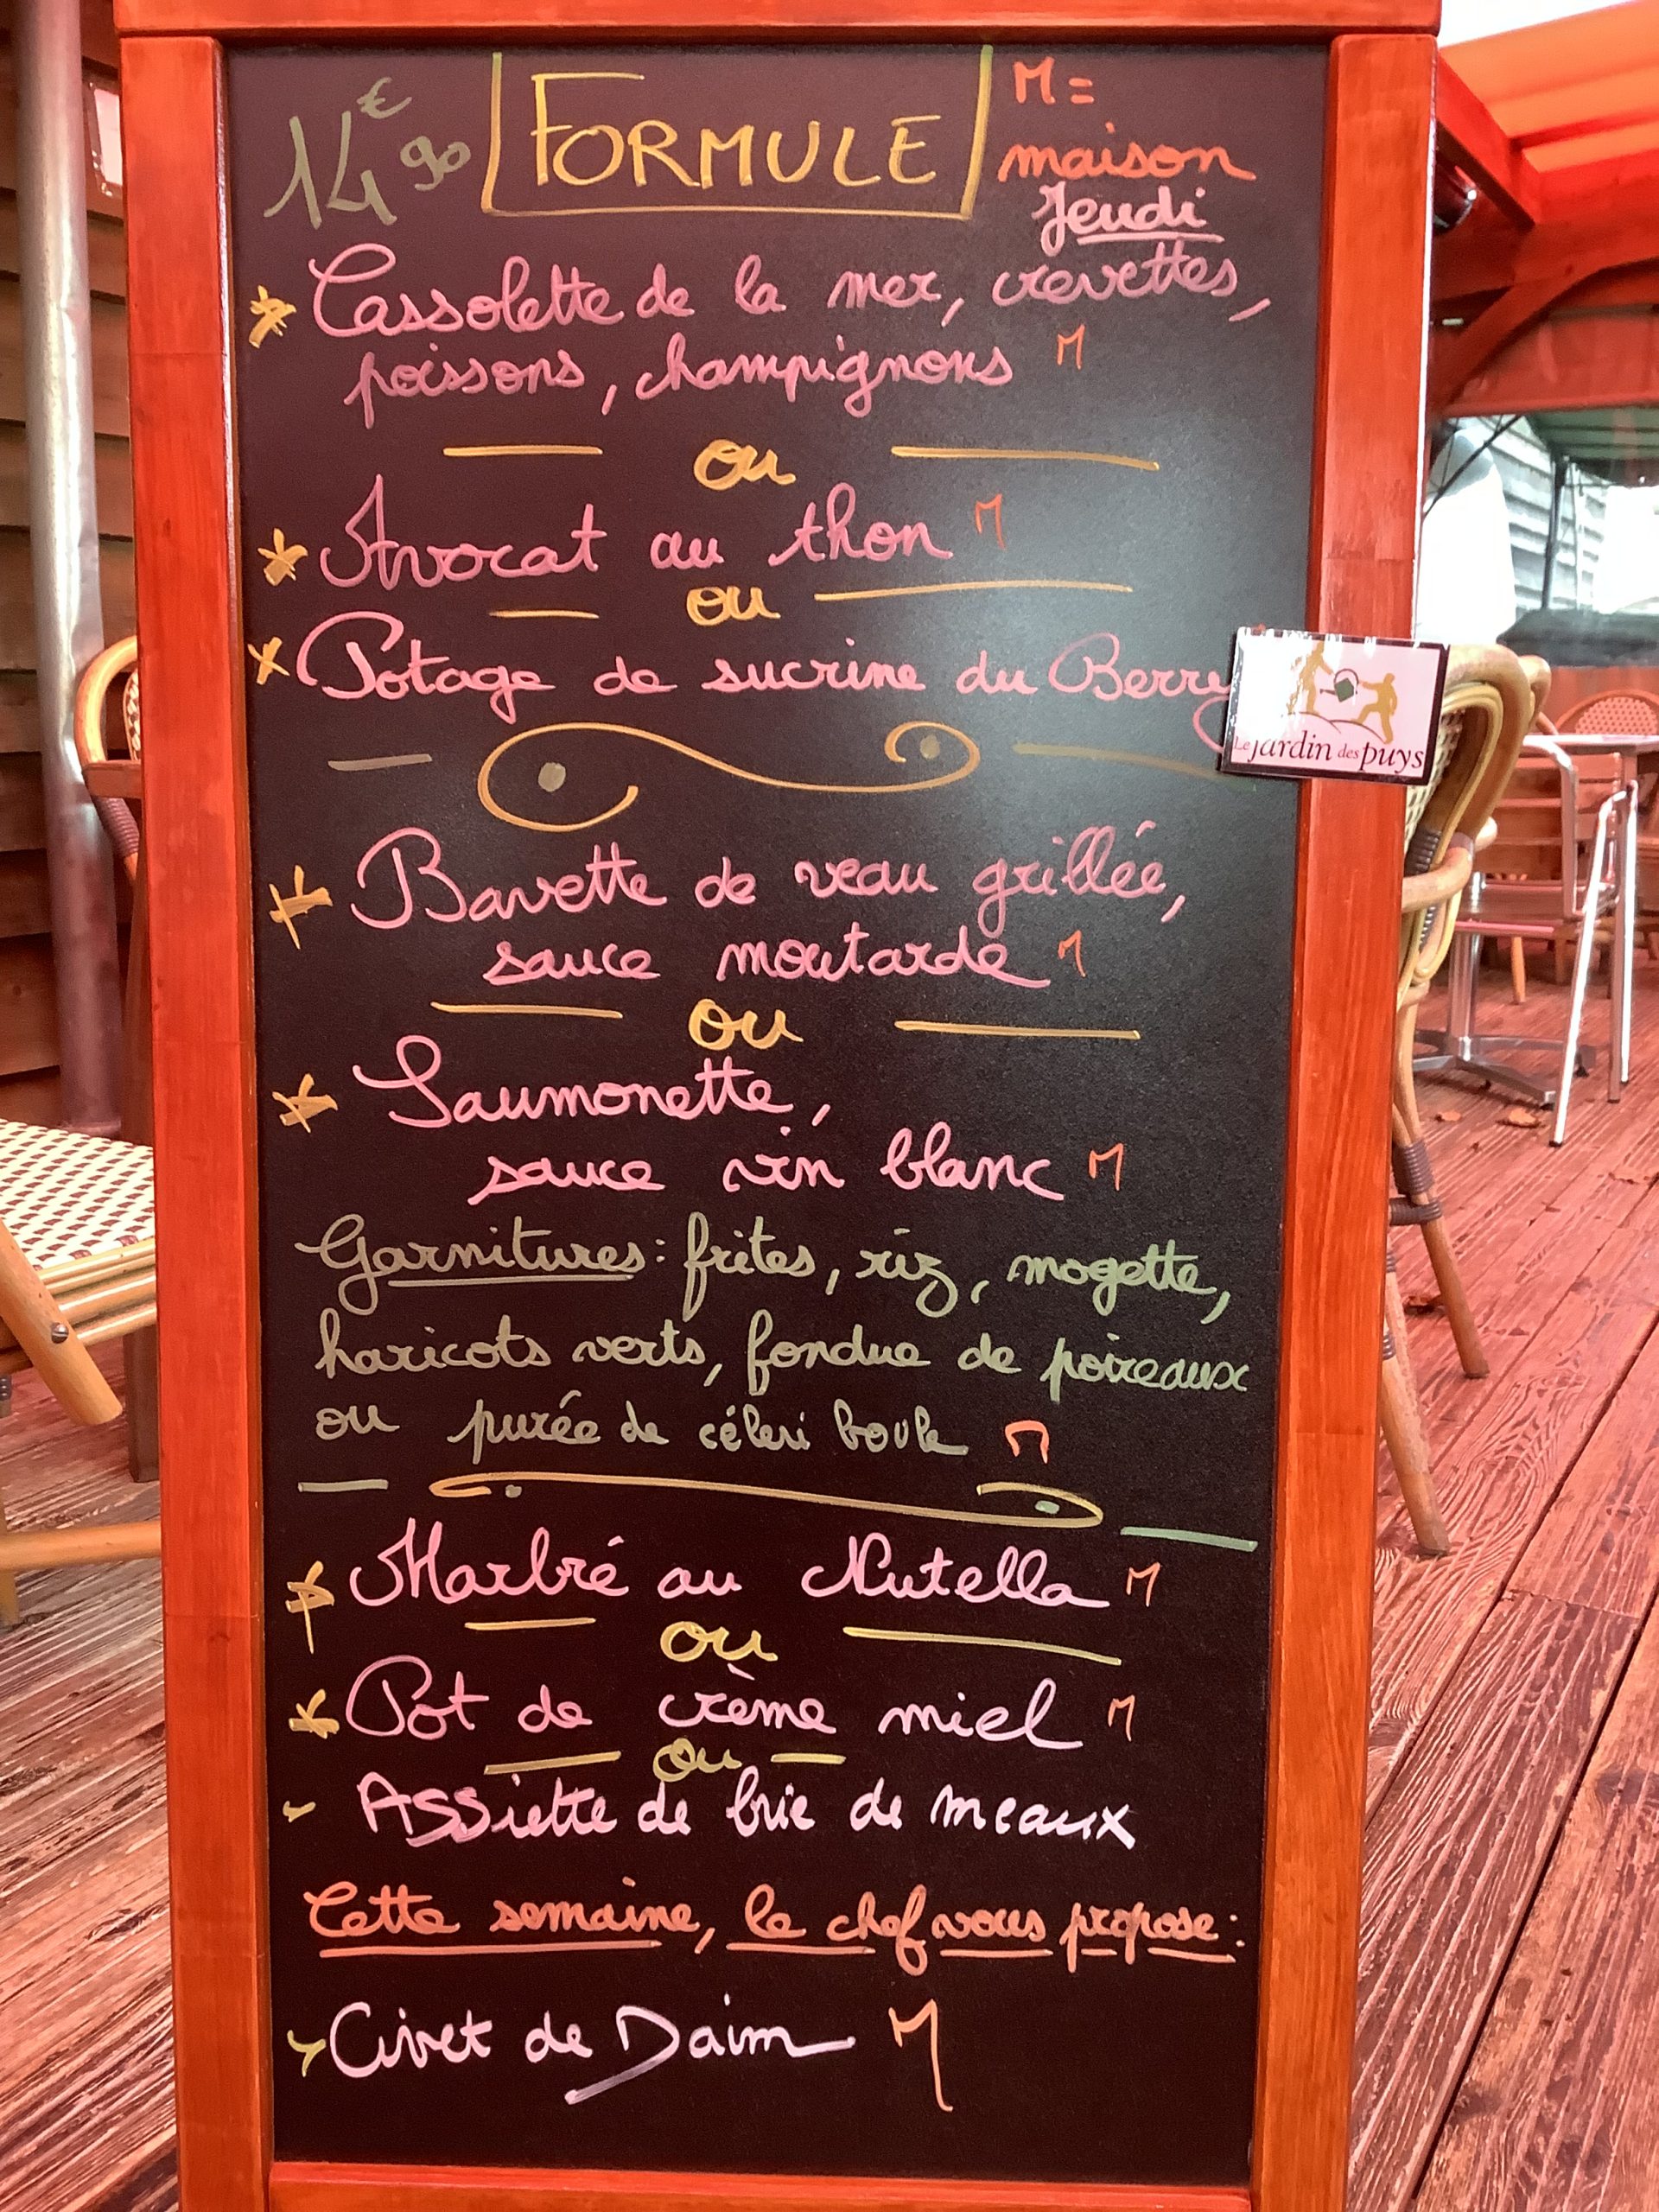 14€90 FORMULE M=
maison
Jeudi
Cassolette de la mer, crevettes,
poissons, champignons M
ou
Avocat au thon M
ou
Potage de sucrine du Berry
Le jardin des puys
Bavette de veau grillée,
sauce moutarde M
ou
Saumonette,
sauce vin blanc M
Garnitures: frites, riz, mogette,
haricots verts, fondue de poireaux
ou purée de céleri boule M
Marbré au Nutella M
ou
Pot de crème miel M
ou
Assiette de brie de meaux
Cette semaine, le chef vous propose:
Civet de Daim M